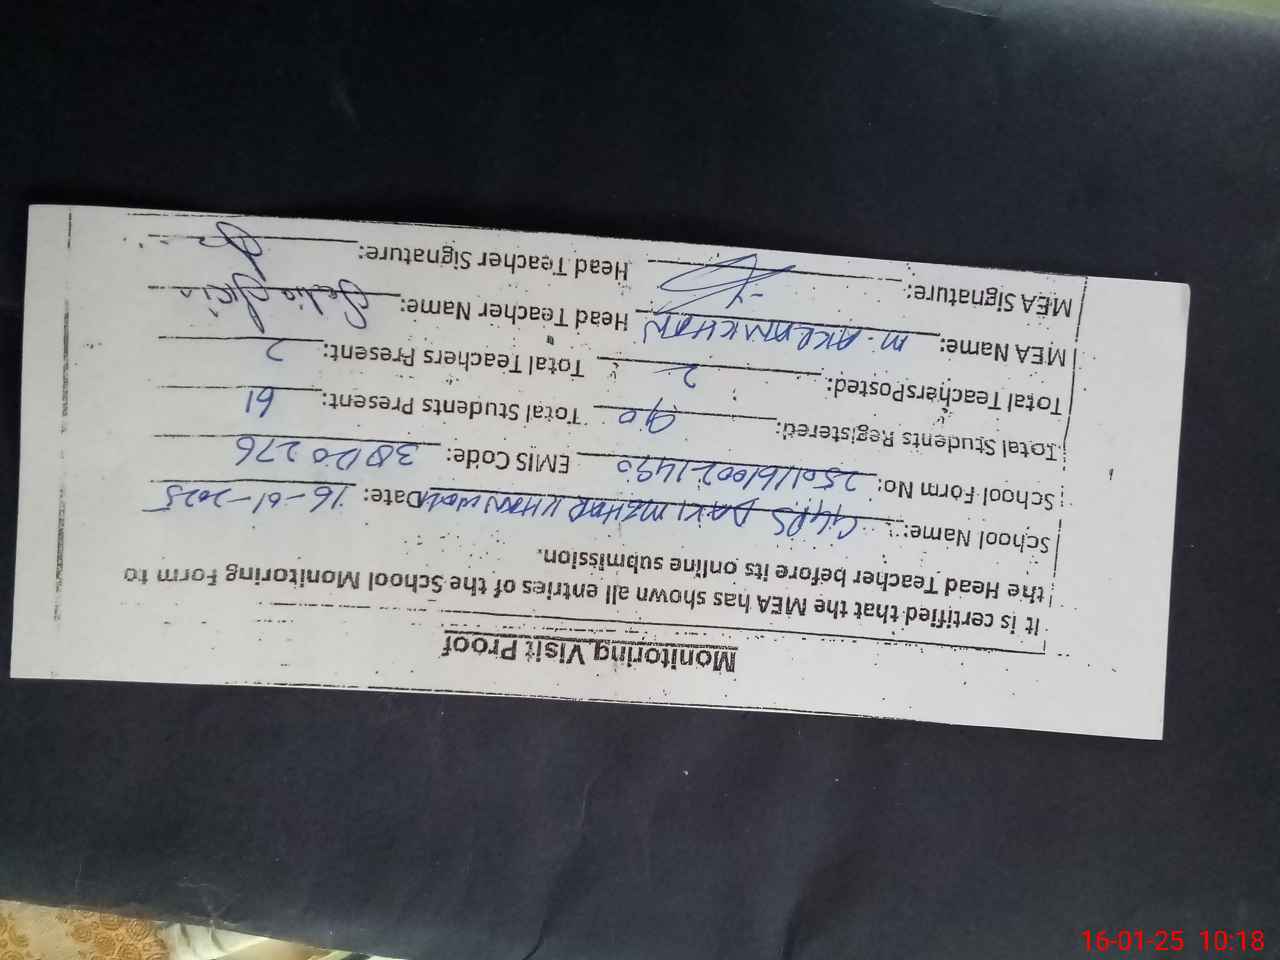 Monitoring Visit Proof
It is certified that the MEA has shown all entries of the School Monitoring Form to
the Head Teacher before its online submission.
School Name: GGPS DAKI MZHAR KHAN Date: 16-01-2025
School Form No: 25011610021490 EMIS Code: 38120276
Total Students Registered: 90 Total Students Present: 61
Total Teachers Posted: 2 Total Teachers Present: 2
MEA Name: M. AKRAM KHAN Head Teacher Name: Sadia
MEA Signature: Head Teacher Signature:
16-01-25 10:18